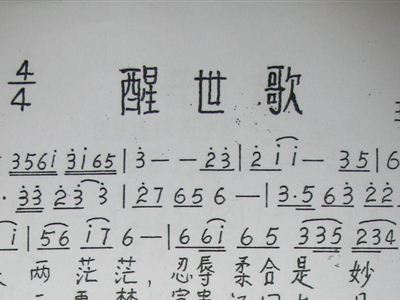 4/4 醒世歌
356i 3i65 | 3 - - 23 | 2 i i - 35 | 6
33 23 3 | 27 656 - | 3.5 63 22
i | 56 i76 | - 6 6i 65 335 234
两茫茫，忍辱柔合是妙